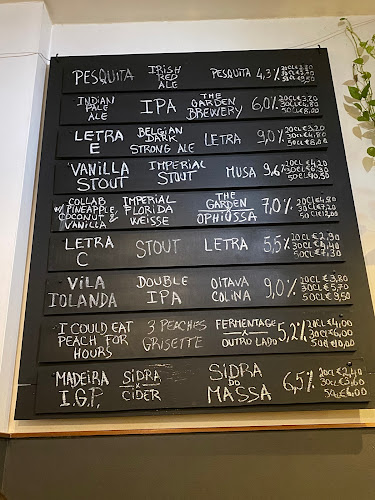 PESQUITA IRISH RED ALE PESQUITA 4,3% 20CL €3,80
30CL €5,70
50CL €9,50
INDIAN PALE ALE IPA THE GARDEN BREWERY 6,0% 20CL €3,20
30CL €4,80
50CL €8,00
LETRA E BELGIAN DARK STRONG ALE LETRA 9,0% 20CL €3,20
30CL €4,80
50CL €8,00
VANILLA STOUT IMPERIAL STOUT MUSA 9,6% 20CL €4,20
30CL €6,30
50CL €10,50
COLLAB W/ PINEAPPLE COCONUT & VANILLA IMPERIAL FLORIDA WEISSE THE GARDEN OPHIUSSA 7,0% 20CL €4,80
30CL €7,20
50CL €12,00
LETRA C STOUT LETRA 5,5% 20CL €2,90
30CL €4,40
50CL €7,30
VILA IOLANDA DOUBLE IPA OITAVA COLINA 9,0% 20CL €3,80
30CL €5,70
50CL €9,50
I COULD EAT PEACH FOR HOURS 3 PEACHES GRISETTE FERMENTAGE X OUTRO LADO 5,2% 20CL €4,00
30CL €6,00
50CL €10,00
MADEIRA I.G.P. SIDRA X CIDER SIDRA DO MASSA 6,5% 20CL €2,40
30CL €3,60
50CL €6,00